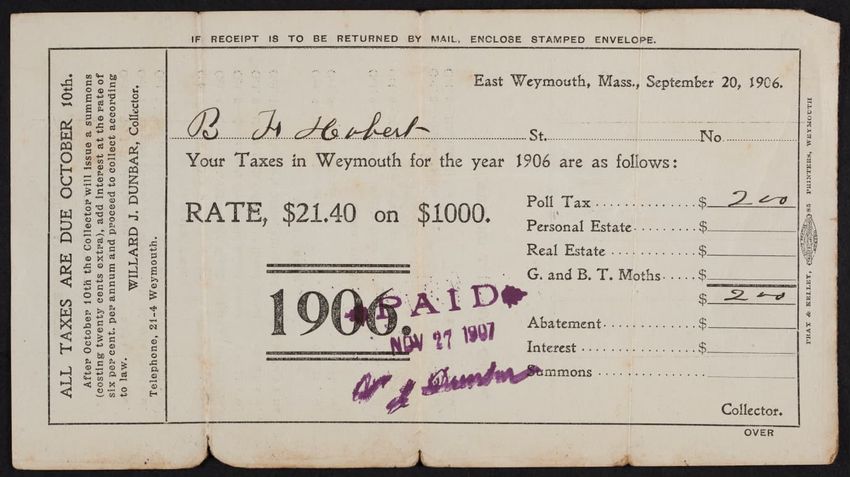 IF RECEIPT IS TO BE RETURNED BY MAIL, ENCLOSE STAMPED ENVELOPE.
ALL TAXES ARE DUE OCTOBER 10th.
After October 10th the Collector will issue a summons
(costing twenty cents extra), add interest at the rate of
six per cent. per annum and proceed to collect according
to law.
WILLARD J. DUNBAR, Collector.
Telephone, 21-4 Weymouth.
East Weymouth, Mass., September 20, 1906.
B H Hobert St. No.
Your Taxes in Weymouth for the year 1906 are as follows:
RATE, $21.40 on $1000.
Poll Tax $ 2 00
Personal Estate $
Real Estate $
G. and B. T. Moths $
$ 2 00
Abatement $
Interest $
Summons
1906.
PAID
NOV 27 1907
W J Dunbar
Collector.
OVER
PRAY & KELLEY, 85 PRINTERS, WEYMOUTH